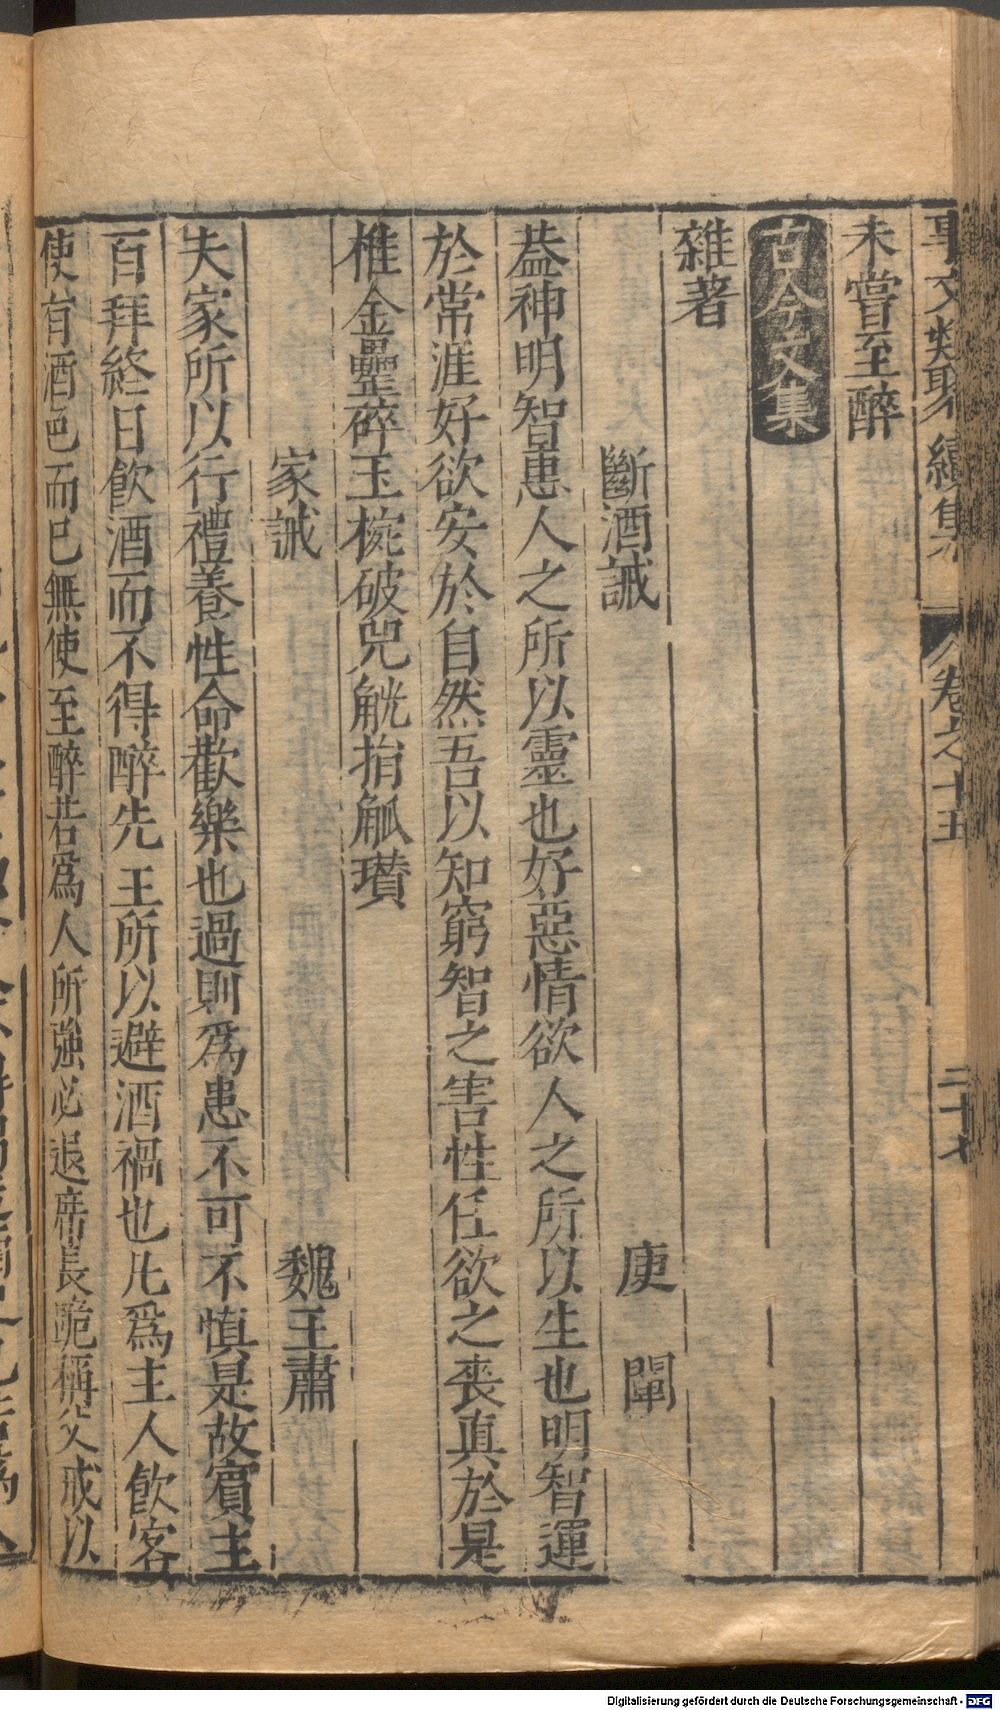 事文類聚續集 卷之十五 二十七
未嘗至醉
古今文集
雜著
斷酒誡 庾闡
葢神明智惠人之所以靈也好惡情欲人之所以生也明智運
於常涯好欲安於自然吾以知窮智之害性任欲之喪真於是
椎金罍碎玉椀破兕觥捐觚瓚
家誡 魏王肅
夫家所以行禮養性命歡樂也過則爲患不可不慎是故賓主
百拜終日飲酒而不得醉先王所以避酒禍也凡爲主人飲客
使有酒色而已無使至醉若爲人所強必退席長跪稱父戒以
Digitalisierung gefördert durch die Deutsche Forschungsgemeinschaft - DFG